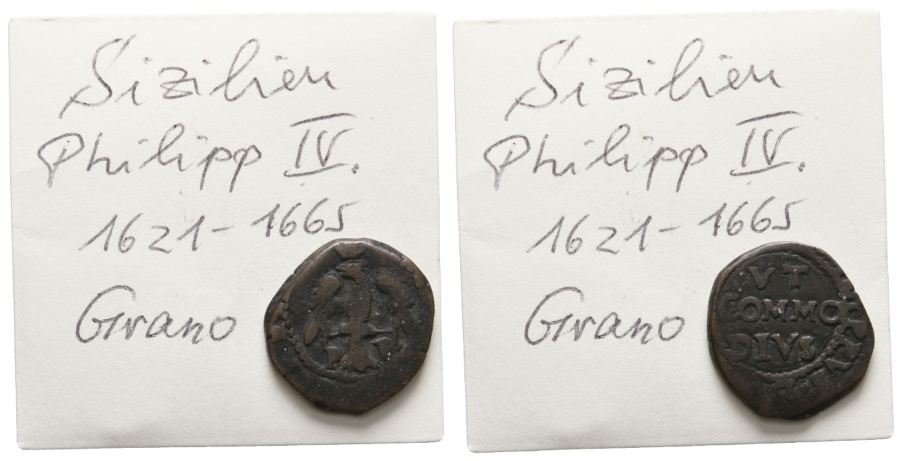 Sizilien
Philipp IV.
1621-1665
Grano
Sizilien
Philipp IV.
1621-1665
Grano
VT
COMMO
DIVS